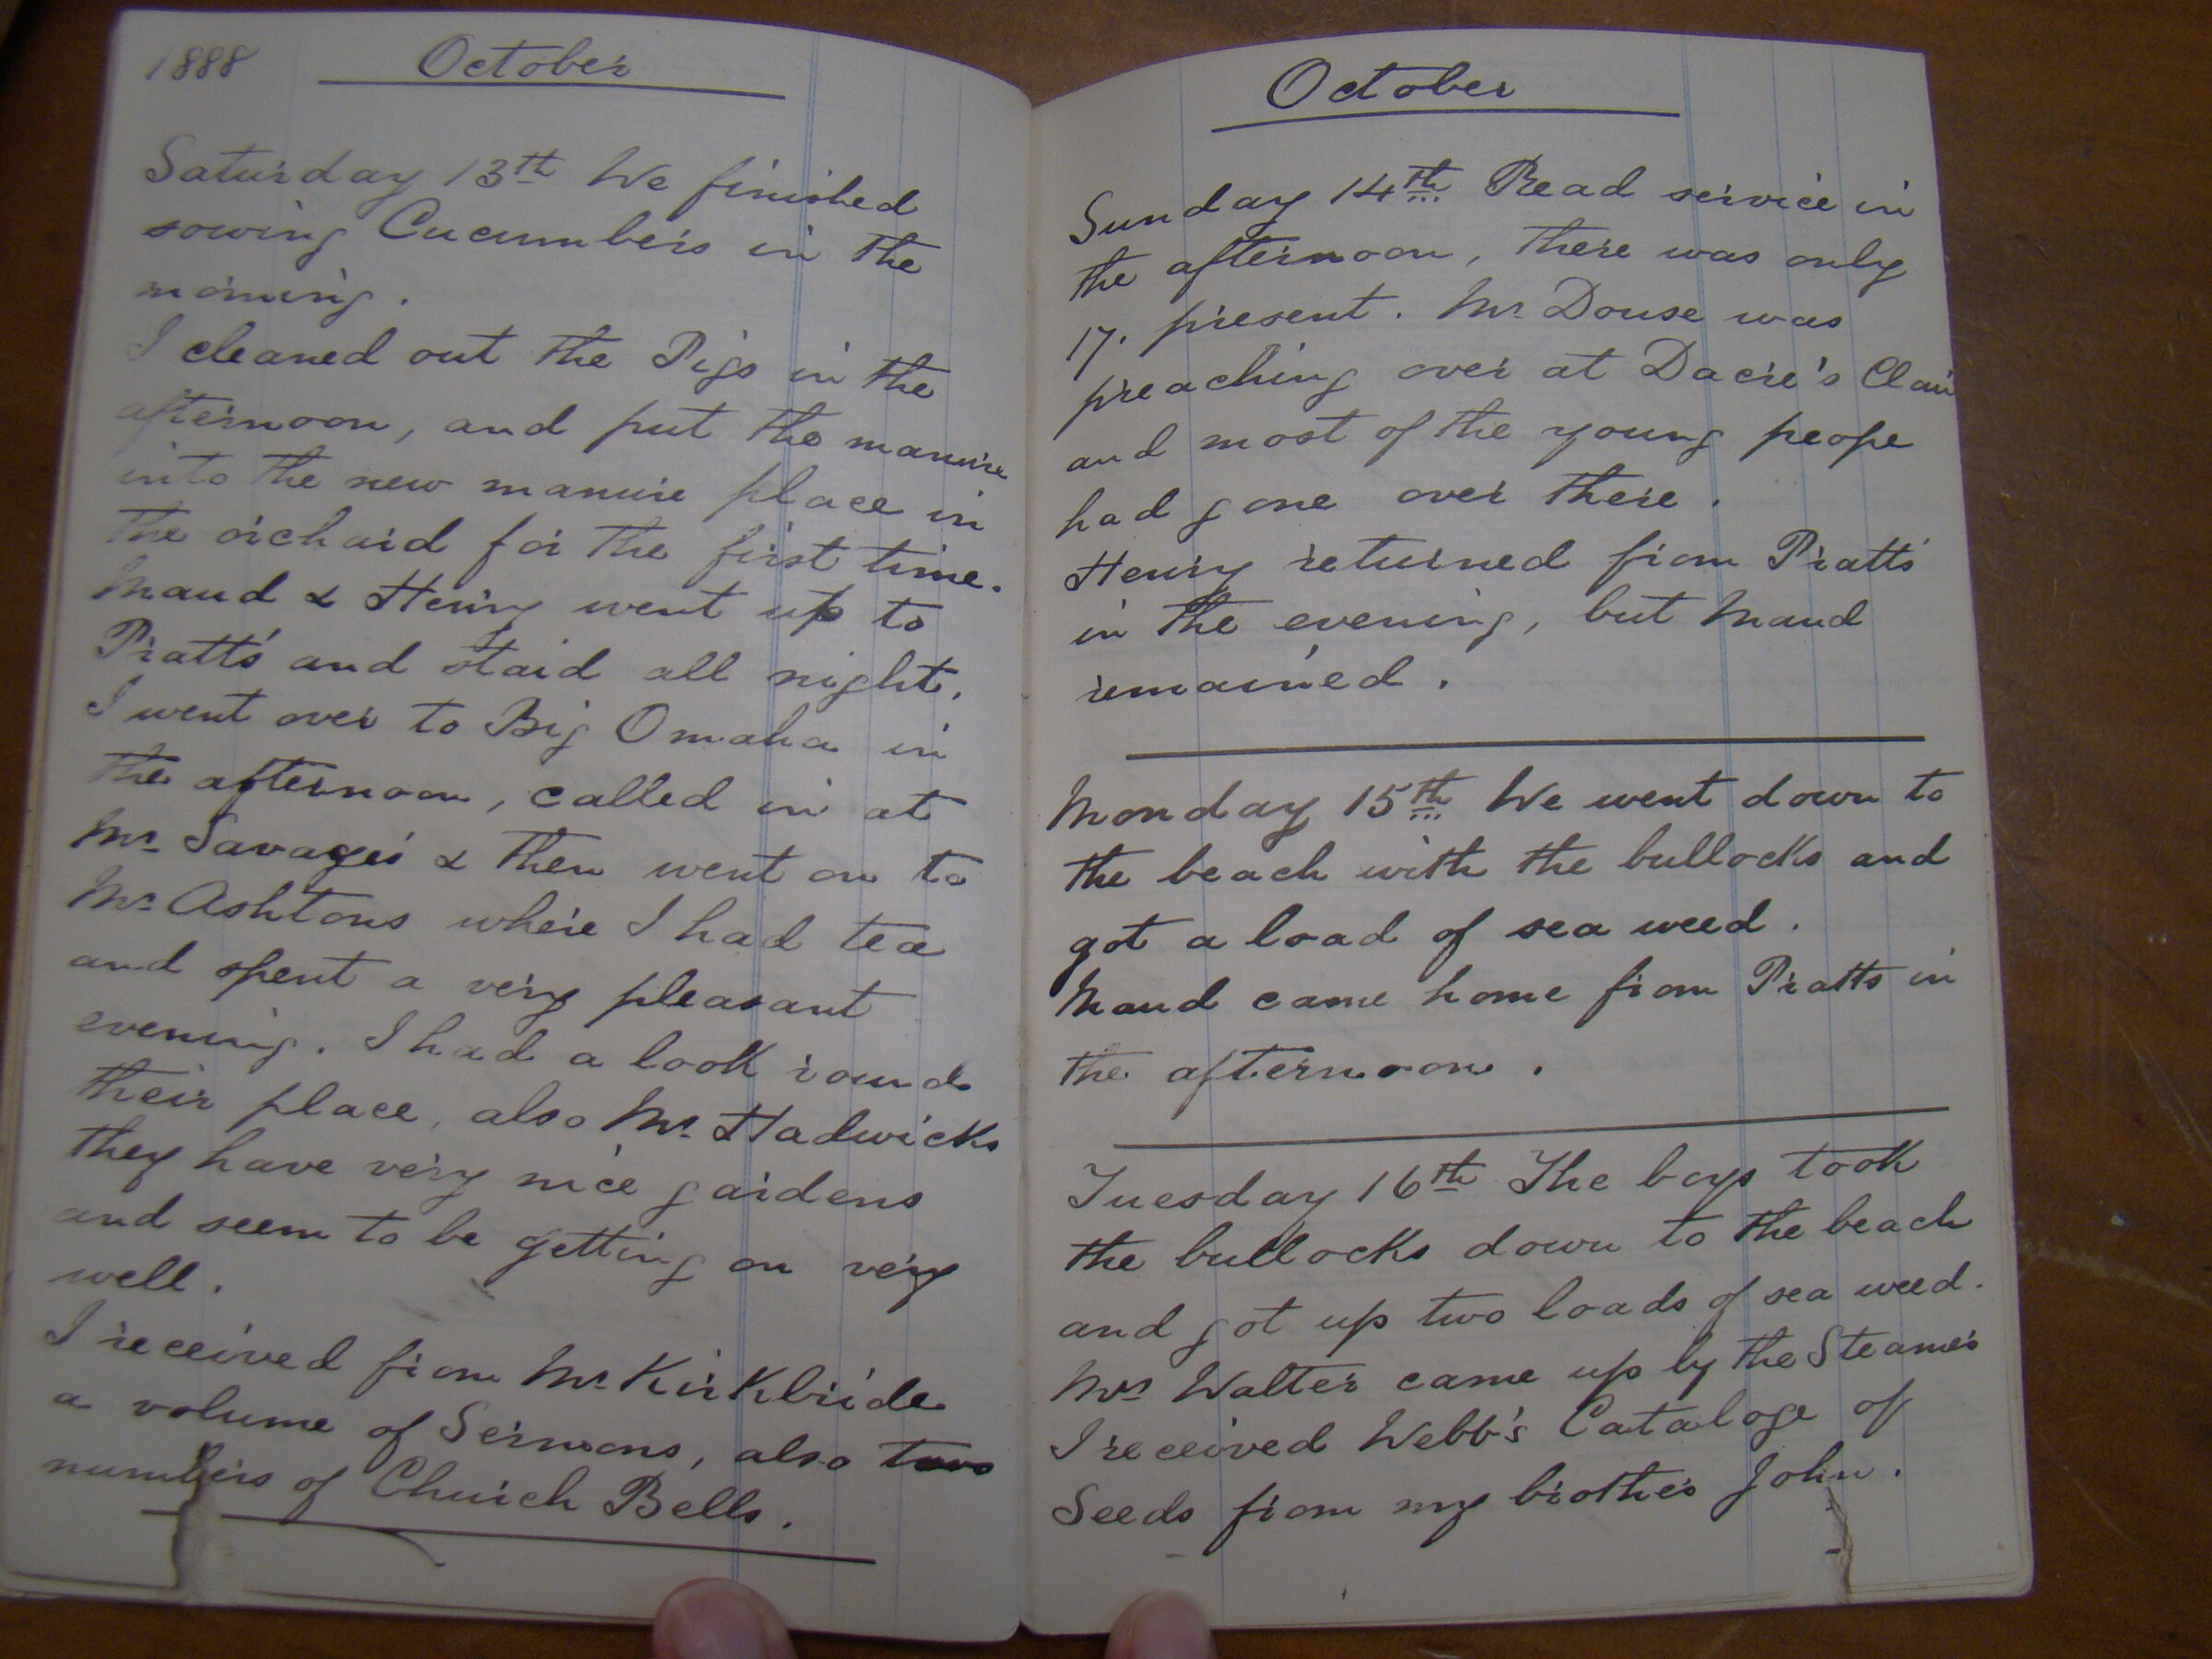 1888 October
Saturday 13th We finished
sowing Cucumbers in the
morning.
I cleaned out the Pigs in the
afternoon, and put the manure
into the new manure place in
the orchard for the first time.
Maud & Henry went up to
Pratts' and staid all night.
I went over to Big Omaha in
the afternoon, called in at
Mr Savages & then went on to
Mr Ashtons where I had tea
and spent a very pleasant
evening. I had a look round
their place, also Mr Hadwicks
they have very nice gardens
and seem to be getting on very
well.
I received from Mr Kirkbride
a volume of Sermons, also two
numbers of Church Bells.
October
Sunday 14th Read service in
the afternoon, there was only
17. present. Mr Douse was
preaching over at Dacre's Claim
and most of the young peope
had gone over there.
Henry returned from Pratts'
in the evening, but Maud
remained.
Monday 15th We went down to
the beach with the bullocks and
got a load of sea weed.
Maud came home from Pratts in
the afternoon.
Tuesday 16th The boys took
the bullocks down to the beach
and got up two loads of sea weed.
Mrs Walter came up by the Steamer
I received Webb's Cataloge of
Seeds from my brother John.